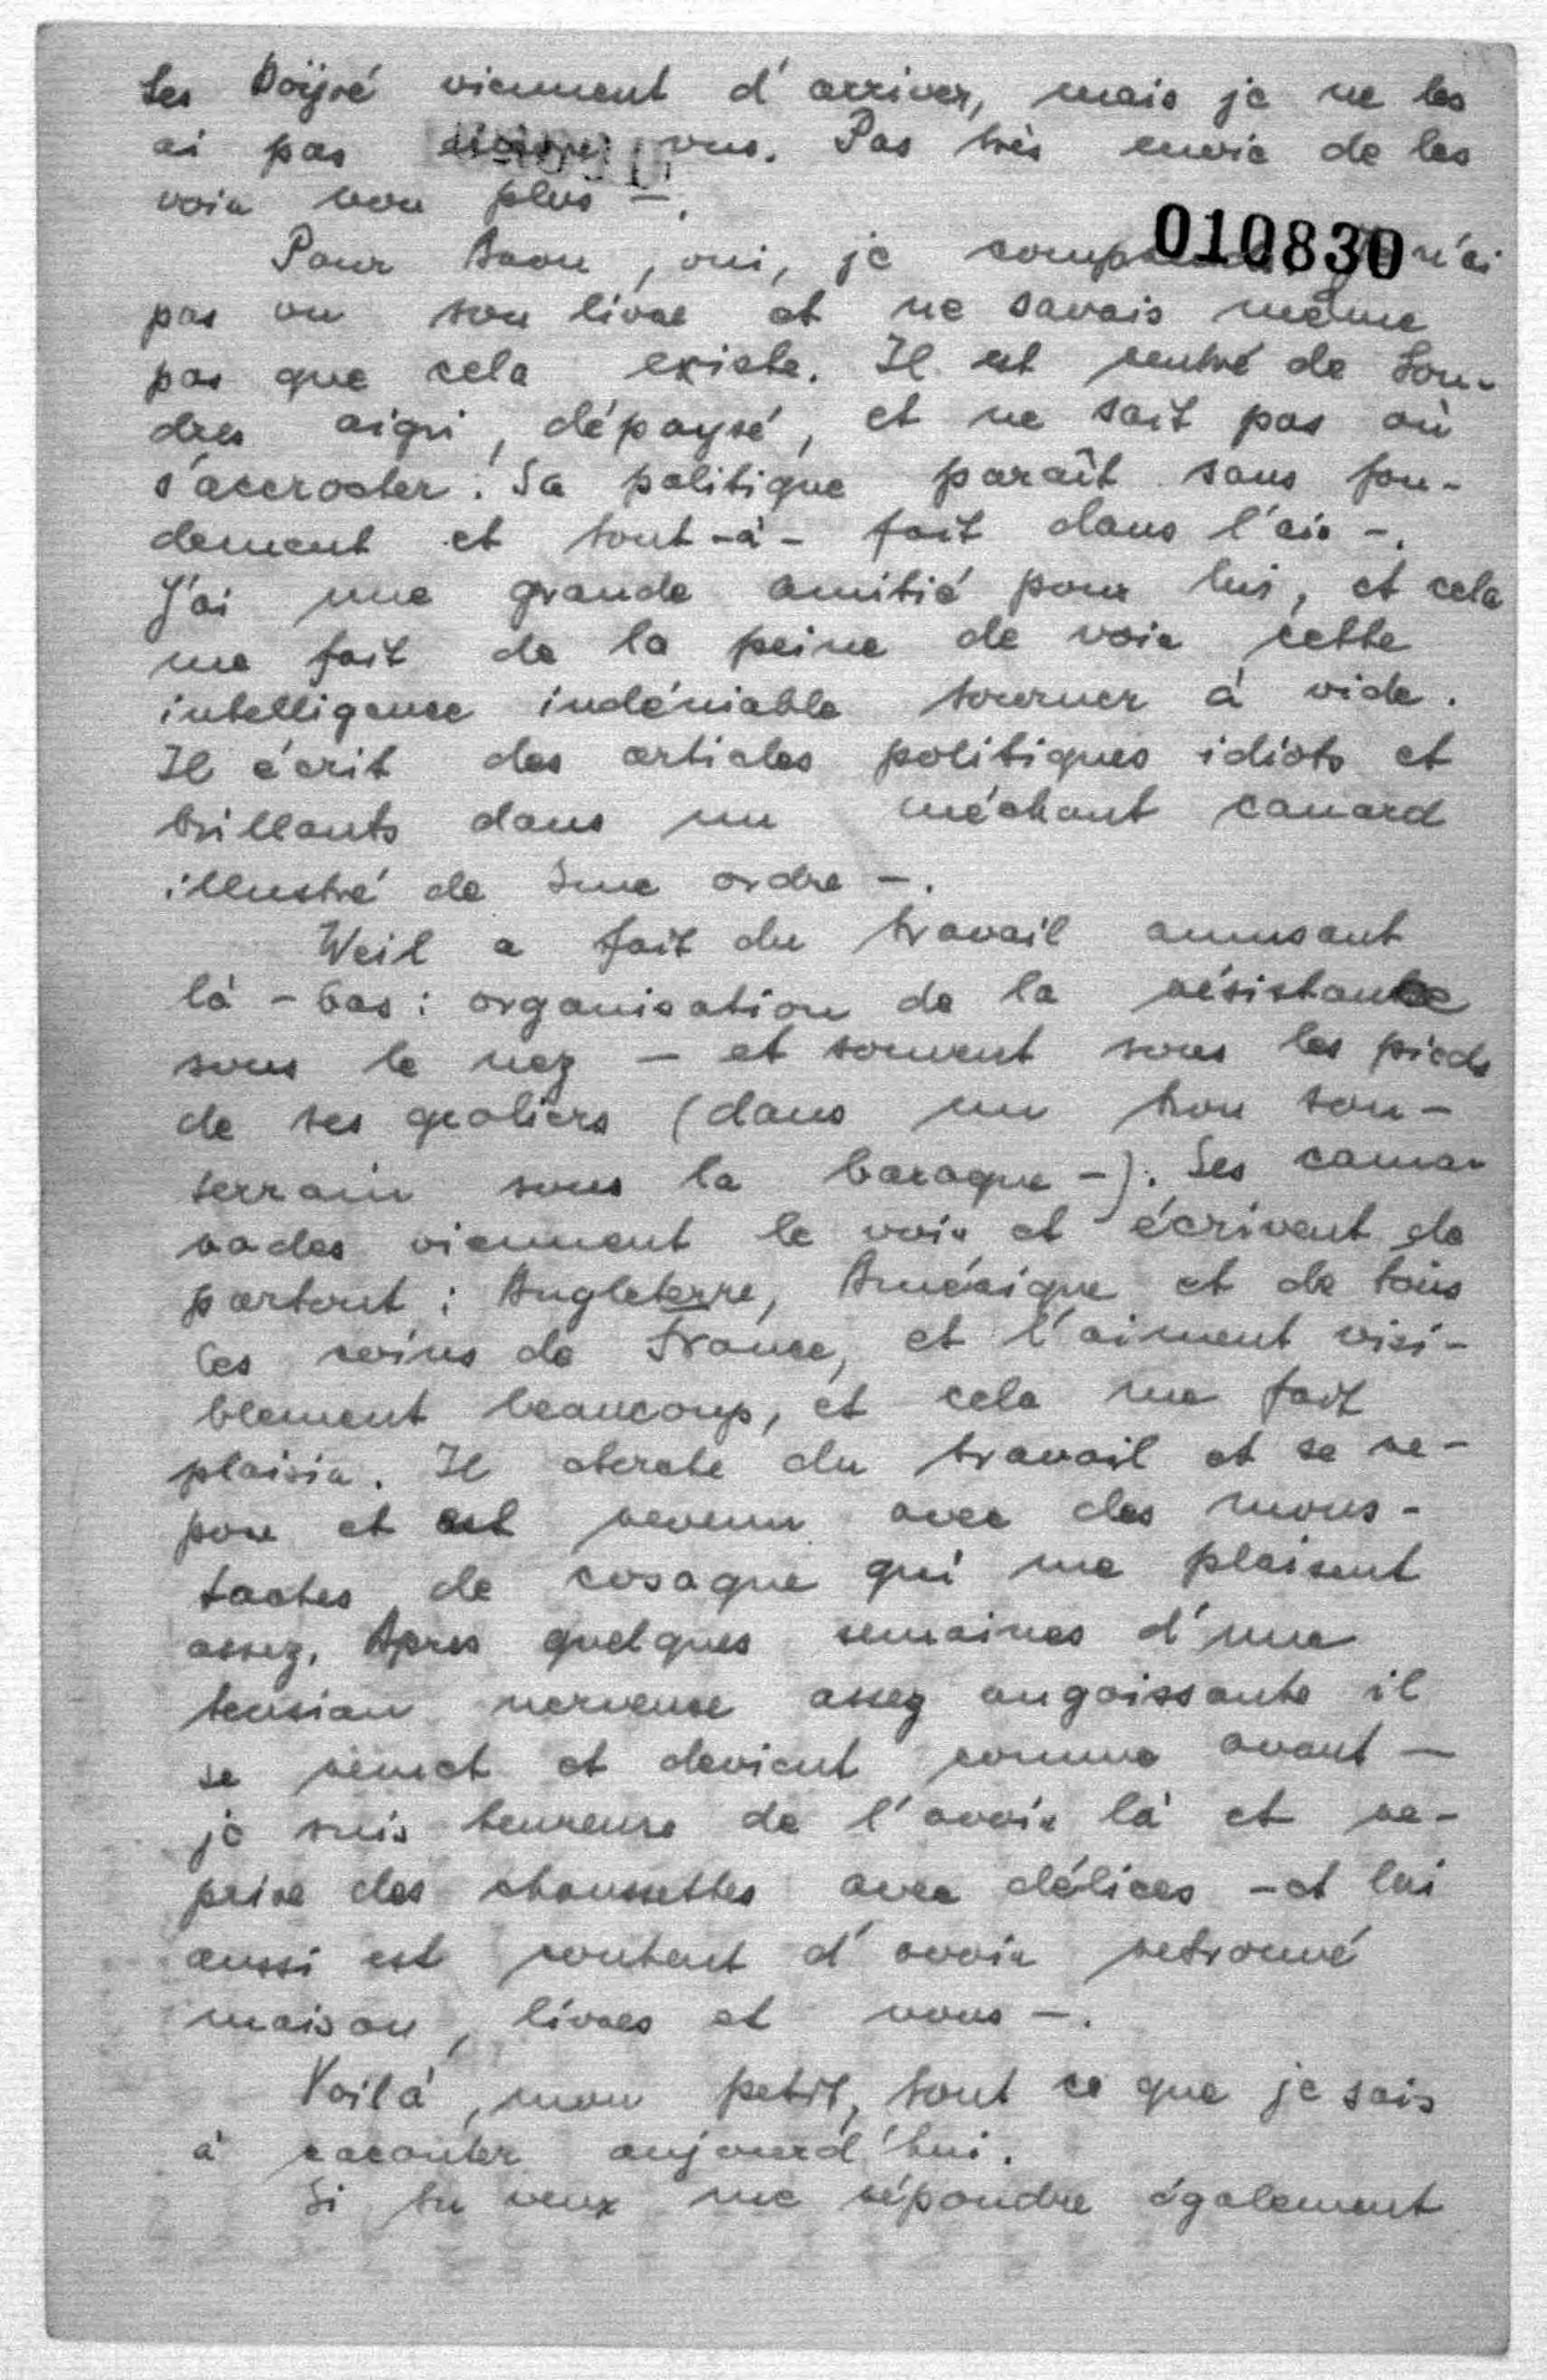 Les Koÿré viennent d'arriver, mais je ne les
ai pas encore vus. Pas très envie de les
voir non plus —.
010830
Pour Aron, oui, je comprends. Je n'ai
pas vu son livre et ne savais même
pas que cela existe. Il est rentré de Lon-
dres aigri, dépaysé, et ne sait pas où
s'accrocher. Sa politique paraît sans fon-
dement et tout-à-fait dans l'air —.
J'ai une grande amitié pour lui, et cela
me fait de la peine de voir cette
intelligence indéniable tourner à vide.
Il écrit des articles politiques idiots et
brillants dans un méchant canard
illustré de 2me ordre —.
Weil a fait du travail amusant
là-bas : organisation de la résistance
sous le nez — et souvent sous les pieds
de ses geoliers (dans un trou sou-
terrain sous la baraque —). Ses cama-
rades viennent le voir et écrivent de
partout : Angleterre, Amérique et de tous
les coins de France, et l'aiment visi-
blement beaucoup, et cela me fait
plaisir. Il cherche du travail et se re-
pose et est revenu avec des mous-
taches de cosaque qui me plaisent
assez. Apres quelques semaines d'une
tension nerveuse assez angoissante il
se remet et devient comme avant —
je suis heureuse de l'avoir là et re-
prise des chaussettes avec délices — et lui
aussi est content d'avoir retrouvé
maison, livres et nous —.
Voilà, mon petit, tout ce que je sais
à raconter aujourd'hui.
Si tu veux me répondre également